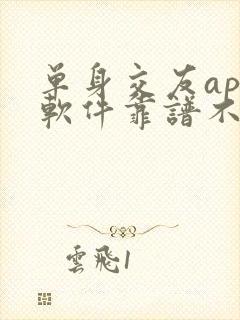 单身交友ap
軟件靠譜不
雲飛1